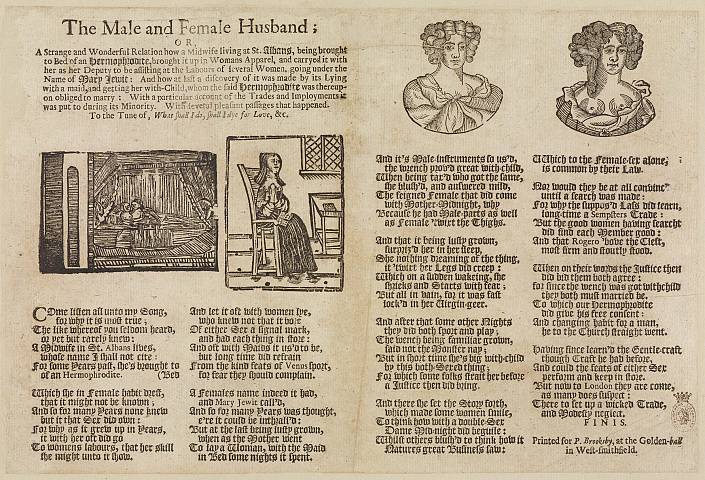 The Male and Female Husband;
OR,
A Strange and Wonderful Relation how a Midwife living at St. Albans, being brought
to Bed of an Hermophrodite, brought it up in Womans Apparel, and carryed it with
her as her Deputy to be assisting at the Labours of several Women, going under the
Name of Mary Jewit: And how at last a discovery of it was made by its Lying
with a maid, and getting her with-Child, whom the said Hermophrodite was thereup-
on obliged to marry: With a particular account of the Trades and Imployments it
was put to during its Minority. With several pleasant passages that happened.
To the Tune of, What shall I do, shall I dye for Love, &c.
COme listen all unto my Song,
for why it is most true;
The like whereof you seldom heard,
or yet but rarely knew:
A Midwife in St. Albans lives,
whose name I shall not cite:
For some Years past, she's brought to
of an Hermophrodite. (Bed
Which she in Female habit drest,
that it might not be known,
And so for many Years none knew
but it that Sex did own:
For why as it grew up in Years,
it with her oft did go
To womens labours, that her skill
she might unto it show.
And let it oft with women lye,
who knew not that it bore
Of either Sex a signal mark,
and had each thing in store:
And oft with Maids it us'd to be,
but long time did refrain
From the kind feats of Venus sport,
for fear they should complain.
A Females name indeed it had,
and Mary Jewit call'd,
And so for many Years was thought,
e're it could be inthral'd:
But at the last being lusty grown,
when as the Mother went
To lay a Woman, with the Maid
in Bed some nights it spent.
And it's Male-instruments so us'd,
the wench prov'd great with-child,
When being tax'd who got the same,
she blush'd, and answered mild,
The feigned Female that did come
with Mother-Midnight, why
Because he had Male-parts as well
as Female 'twixt the Thighs.
And that it being lusty grown,
surpriz'd her in her sleep,
She nothing dreaming of the thing,
it 'twixt her Legs did creep:
Which on a sudden wakeing, she
shrieks and Starts with fear;
But all in vain, for it was fast
lock'd in her Virgin-geer.
And after that some other Nights
they did both sport and play;
The wench being familiar grown,
said not the Monster nay;
But in short time she's big with-child
by this both-Sexed thing;
For which some folks strait her before
a Justice then did bring.
And there she set the Story forth,
which made some women smile,
To think how with a double-Sex
Dame Mid-night did beguile:
Whilst others blush'd to think how it
Natures great Business saw:
Which to the Female-sex alone,
is common by their Law.
Nor would they be at all convinc'd
until a search was made:
For why the suppos'd Lass did learn,
long-time a Sempsters Trade:
But the good women having searcht
did find each Member good:
And that Rogero 'bove the Cleft,
most firm and stoutly stood.
When on their words the Justice then
did bid them both agree:
for since the wench was got with child
they both must married be.
To which our Hermophrodite
did give his free consent:
And changing habit for a man,
he to the Church straight went.
Having since learn'd the Gentle-craft
though Crast he had before,
And could the feats of either Sex
perform and keep in store.
But now to London they are come,
as many does suspect:
There to set up a wicked Trade,
and Modesty neglect.
FINIS.
Printed for P. Brooksby, at the Golden-ball
in West-smithfield.